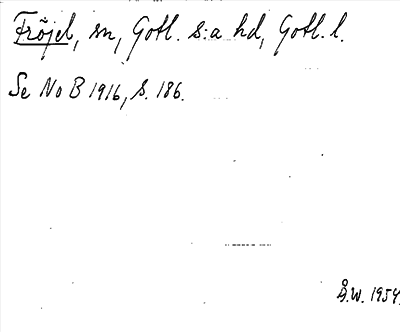 Fröjel, sn, Gotl. s:a hd, Gotl. l.
Se No B 1916, s. 186.
Å.W. 1954.